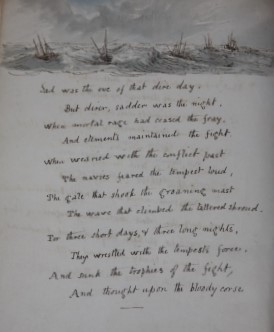 Sad was the eve of that dire day,
But direr, sadder was the night,
When mortal rage had ceased the fray,
And elements maintained the fight.
When wearied with the conflict past
The navies feared the tempest loud,
The gale that shook the groaning mast
The wave that climbed the tattered shroud.
For three short days, & three long nights,
They wrestled with the tempests force,
And sunk the trophies of the fight,
And thought upon the bloody corse